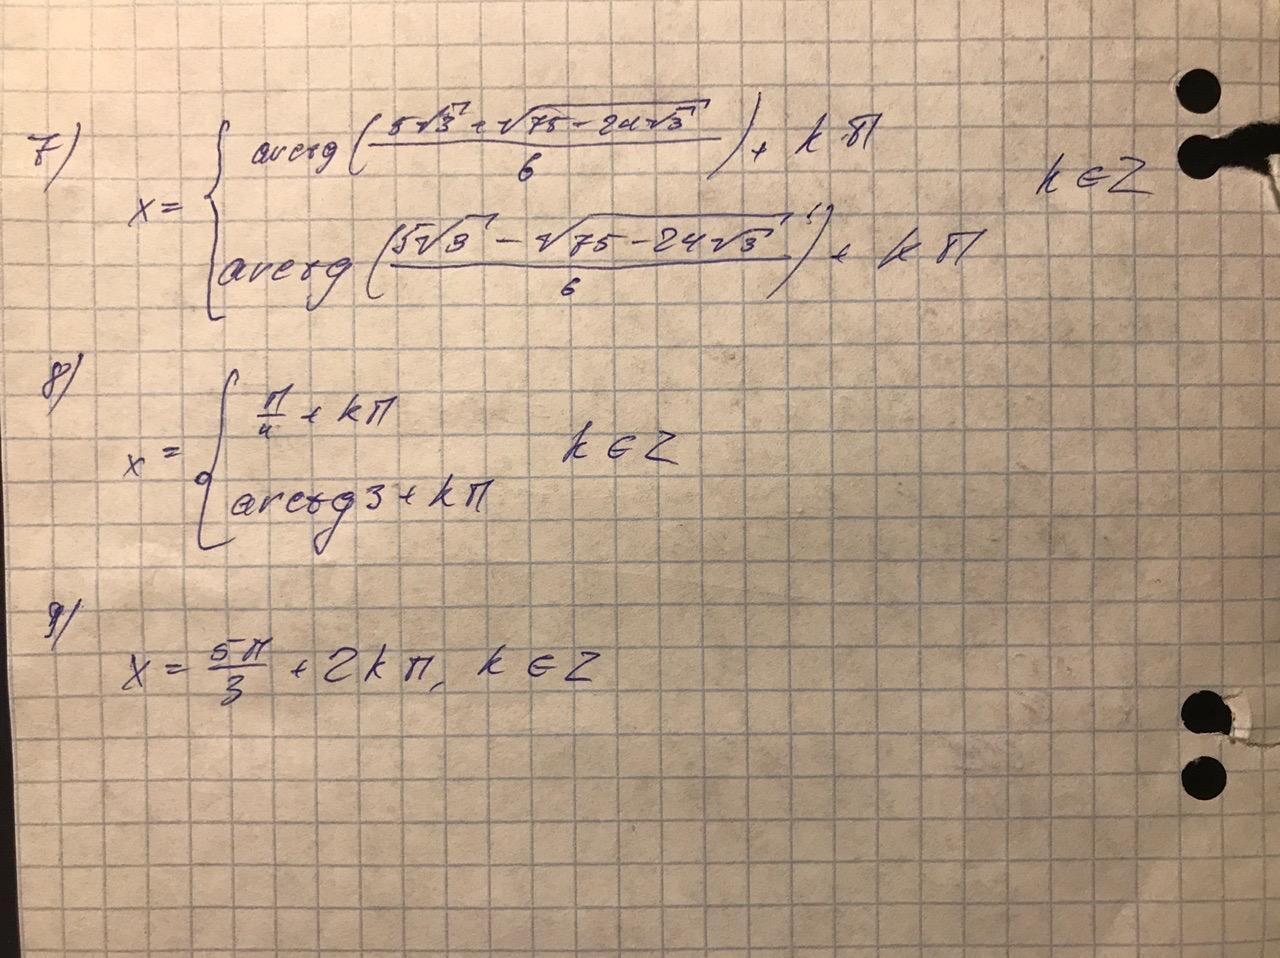 7) x = { arctg((5√3 + √(75 - 24√3))/6) + kπ
arctg((5√3 - √(75 - 24√3))/6) + kπ k ∈ Z
8) x = { π/4 + kπ
arctg 3 + kπ k ∈ Z
9) x = 5π/3 + 2kπ, k ∈ Z